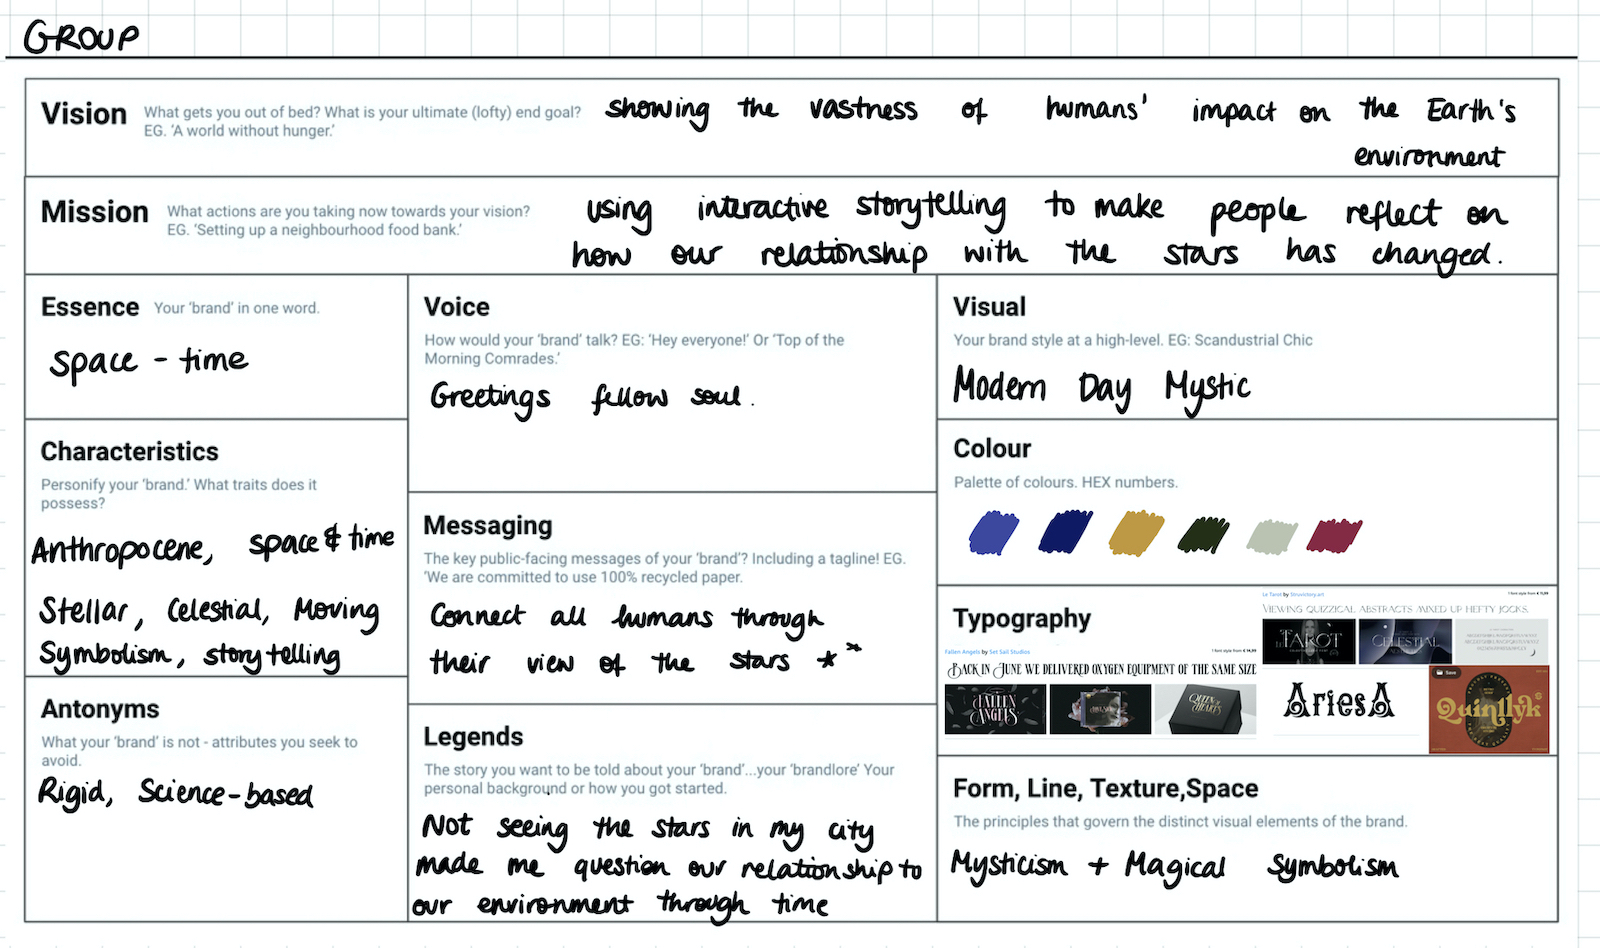 GROUP
Vision What gets you out of bed? What is your ultimate (lofty) end goal?
EG. 'A world without hunger.'
showing the vastness of humans' impact on the Earth's
environment
Mission What actions are you taking now towards your vision?
EG. 'Setting up a neighbourhood food bank.'
using interactive storytelling to make people reflect on
how our relationship with the stars has changed.
Essence Your 'brand' in one word.
space - time
Characteristics
Personify your 'brand.' What traits does it
possess?
Anthropocene, space & time
Stellar, Celestial, Moving
Symbolism, storytelling
Antonyms
What your 'brand' is not - attributes you seek to
avoid.
Rigid, Science-based
Voice
How would your 'brand' talk? EG: 'Hey everyone!' Or 'Top of the
Morning Comrades.'
Greetings fellow soul.
Messaging
The key public-facing messages of your 'brand'? Including a tagline! EG.
'We are committed to use 100% recycled paper.
Connect all humans through
their view of the stars
Legends
The story you want to be told about your 'brand'...your 'brandlore' Your
personal background or how you got started.
Not seeing the stars in my city
made me question our relationship to
our environment through time
Visual
Your brand style at a high-level. EG: Scandustrial Chic
Modern Day Mystic
Colour
Palette of colours. HEX numbers.
Typography
Fallen Angels by Set Sail Studios
1 font style from € 14,99
BACK IN JUNE WE DELIVERED OXYGEN EQUIPMENT OF THE SAME SIZE
FALLEN
ANGELS
QUEEN
HEARTS
Le Tarot by Struvictory.art
VIEWING QUIZZICAL ABSTRACTS MIXED UP HEFTY JOCKS.
TAROT
CELESTIAL
AriesA
Save
Quinllyk
Form, Line, Texture,Space
The principles that govern the distinct visual elements of the brand.
Mysticism + Magical Symbolism